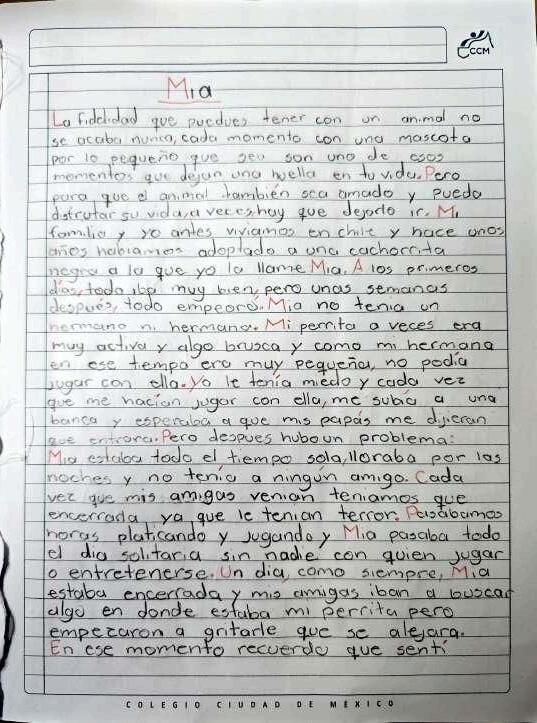 CCM
Mia
La fidelidad que puedues tener con un animal no
se acaba nunca, cada momento con una mascota
por lo pequeño que sea son uno de esos
momentos que dejan una huella en tu vida. Pero
para que el animal también sea amado y pueda
disfrutar su vida, a veces hay que dejarlo ir. Mi
familia y yo antes viviamos en chile y hace unos
años habiamos adoptado a una cachorrita
negra a la que yo la llame Mia. A los primeros
días, todo iba muy bien, pero unas semanas
después, todo empeoró. Mia no tenia un
hermano ni hermana. Mi perrita a veces era
muy activa y algo brusca y como mi hermana
en ese tiempo era muy pequeña, no podía
jugar con ella. Yo le tenía miedo y cada vez
que me hacían jugar con ella, me subía a una
banca y esperaba a que mis papás me dijeran
que entrara. Pero despues hubo un problema:
Mia estaba todo el tiempo sola, lloraba por las
noches y no tenía a ningún amigo. Cada
vez que mis amigas venian teniamos que
encerrarla ya que le tenian terror. Pasabamos
horas platicando y jugando y Mia pasaba todo
el dia solitaria sin nadie con quien jugar
o entretenerse. Un dia, como siempre, Mia
estaba encerrada y mis amigas iban a buscar
algo en donde estaba mi perrita pero
empezaron a gritarle que se alejara.
En ese momento recuerdo que sentí
COLEGIO CIUDAD DE MÉXICO